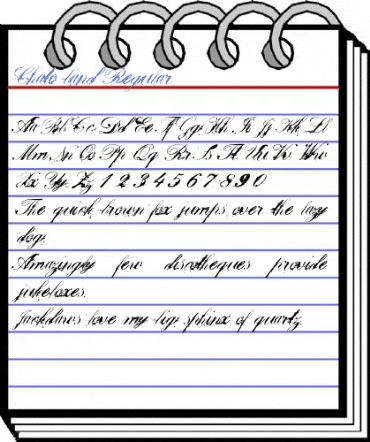 Chato land Regular
Aa Bb Cc Dd Ee Ff Gg Hh Ii Jj Kk Ll
Mm Nn Oo Pp Qq Rr Ss Tt Uu Vv Ww
Xx Yy Zz 1 2 3 4 5 6 7 8 9 0
The quick brown fox jumps over the lazy
dog.
Amazingly few discotheques provide
jukeboxes.
Jackdaws love my big sphinx of quartz.